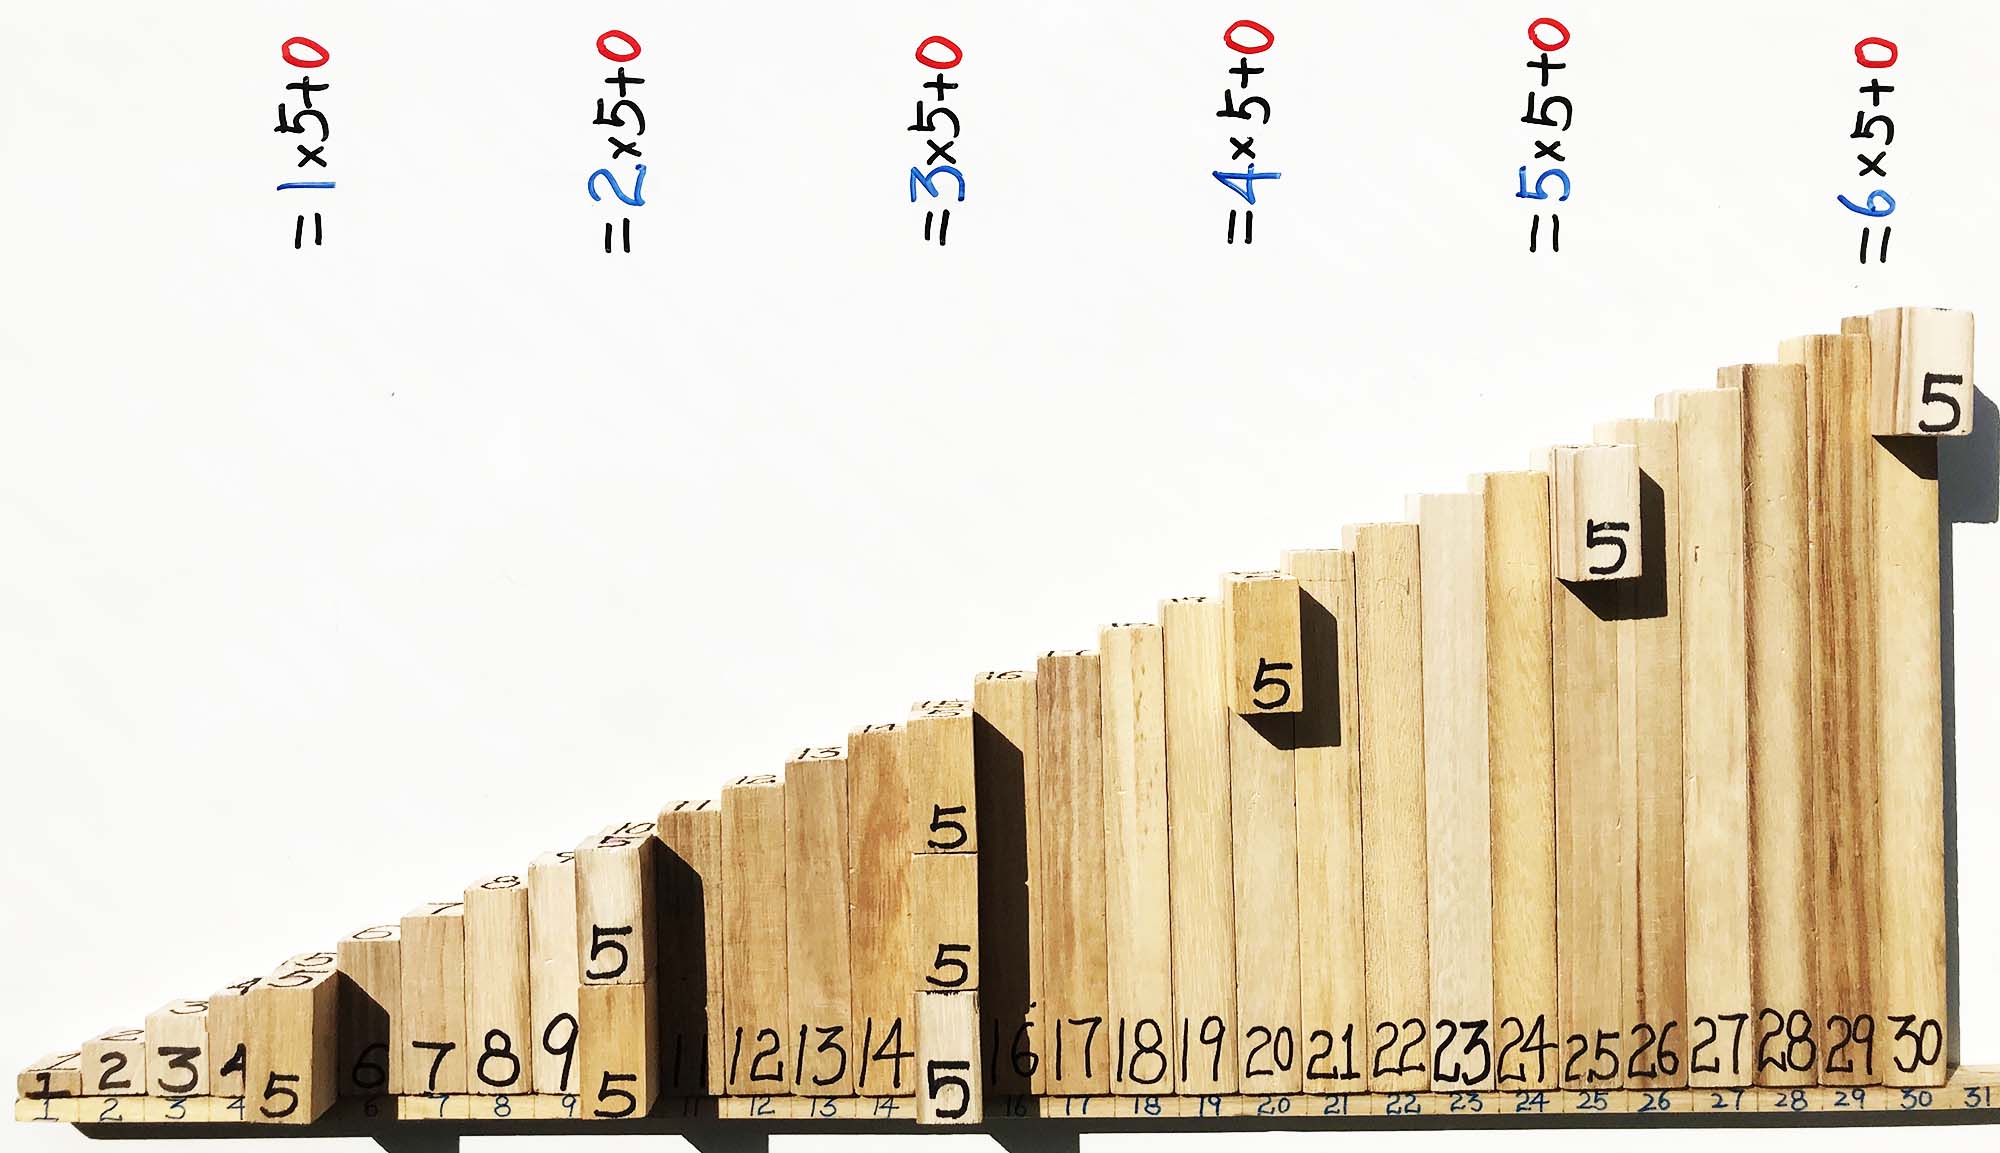 =1×5+0
=2×5+0
=3×5+0
=4×5+0
=5×5+0
=6×5+0
5
5
5
16
15
5
14
13
12
11
10
5
9
8
7
6
5
5
4
3
2
1
5
5
5
5
1 2 3 4 5 6 7 8 9 5 11 12 13 14 5 16 17 18 19 20 21 22 23 24 25 26 27 28 29 30
1 2 3 4 6 7 8 9 11 12 13 14 16 17 18 19 20 21 22 23 24 25 26 27 28 29 30 31